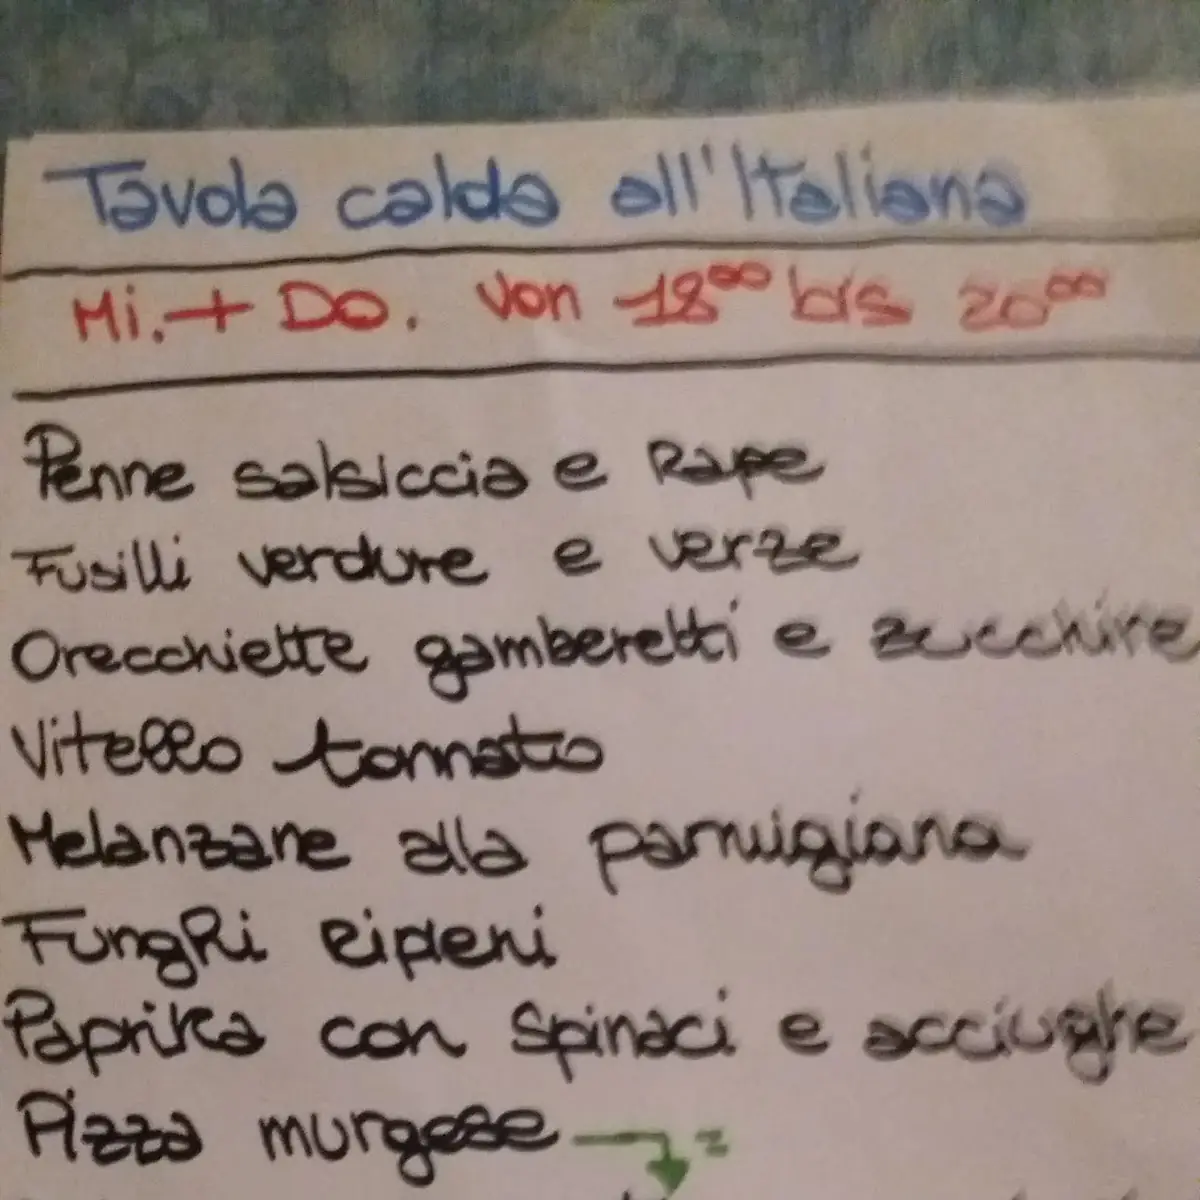 Tavola calda all'Italiana
Mi. + Do. von 18⁰⁰ bis 20⁰⁰
Penne salsiccia e Rape
Fusilli verdure e verze
Orecchiette gamberetti e zucchine
Vitello tonnato
Melanzane alla parmigiana
Funghi ripieni
Paprika con Spinaci e acciughe
Pizza murgese